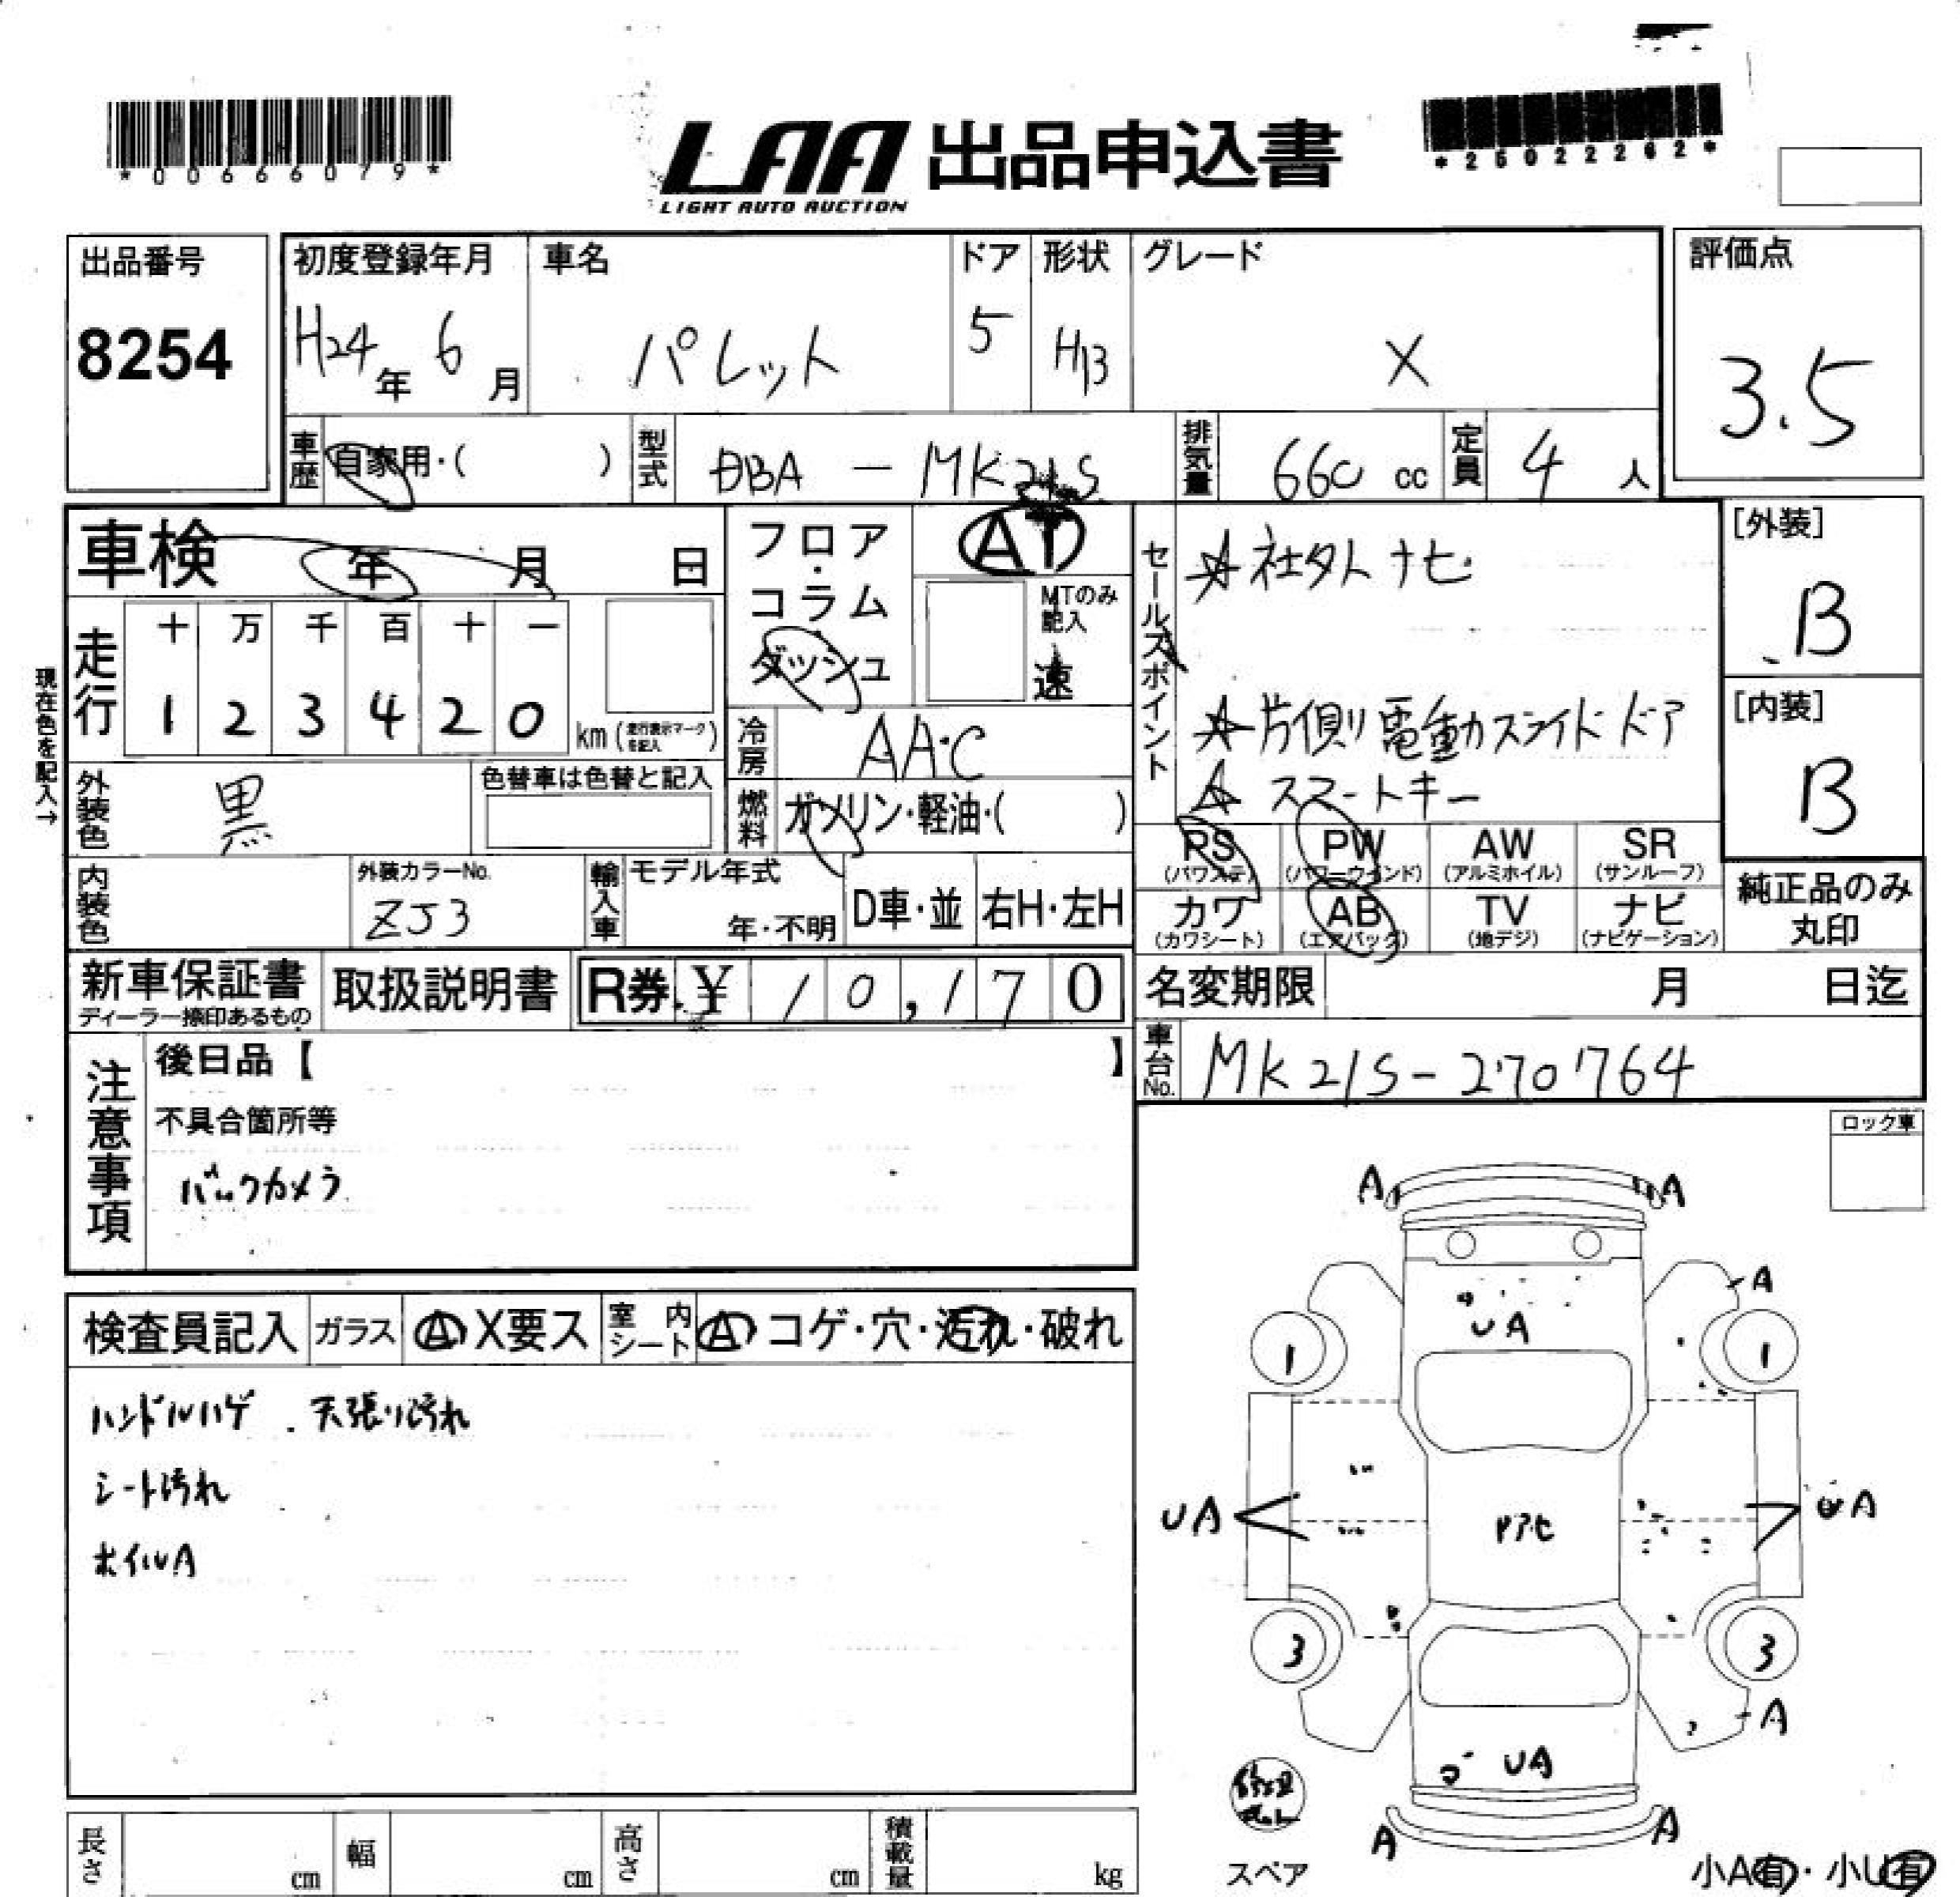 *00666079*
LAA 出品申込書
LIGHT AUTO AUCTION
*25022262*
出品番号
8254
初度登録年月
H24年 6月
車名
パレット
ドア
5
形状
H13
グレード
X
評価点
3.5
車歴
自家用・( )
型式
DBA - MK21S
排気量
660 cc
定員
4 人
車検 年 月 日
フロア・コラム・ダッシュ
AT
MTのみ記入
速
セールスポイント
☆社外ナビ
☆片側電動スライドドア
☆スマートキー
[外装]
B
[内装]
B
現在色を記入→
走行
十 万 千 百 十 一
1 2 3 4 2 0
km (走行表示マークを記入)
冷房
AAC
外装色
黒
色替車は色替と記入
燃料
ガソリン・軽油・( )
PS (パワステ)
PW (パワーウインド)
AW (アルミホイル)
SR (サンルーフ)
カワ (カワシート)
AB (エアバック)
TV (地デジ)
ナビ (ナビゲーション)
純正品のみ丸印
内装色
外装カラーNo.
ZJ3
輸入車
モデル年式
年・不明
D車・並
右H・左H
新車保証書
ディーラー捺印あるもの
取扱説明書
R券 ¥ 10,170
名変期限 月 日迄
車台No.
MK21S-270764
注意事項
後日品【 】
不具合箇所等
バックカメラ
ロック車
検査員記入
ガラス
A X要ス
室内シート
A コゲ・穴・汚れ・破れ
ハンドルハゲ . 天張り汚れ
シート汚れ
ホイルA
A A
A
UA
1 1
UA UA
3 3
A
UA
A A
スペア
小A有・小U有
長さ cm
幅 cm
高さ cm
積載量 kg